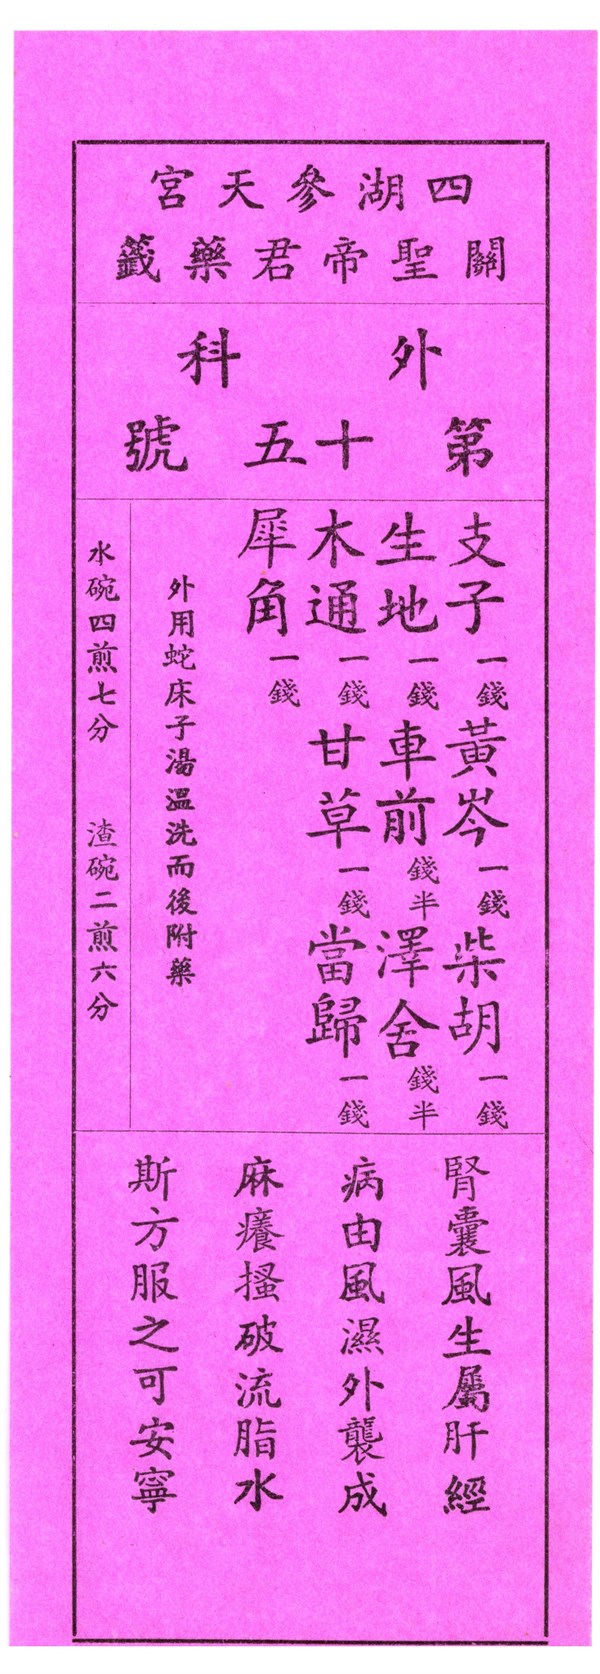 四湖參天宮
關聖帝君藥籤
外科
第十五號
支子一錢 黃岑一錢 柴胡一錢
生地一錢 車前錢半 澤舍錢半
木通一錢 甘草一錢 當歸一錢
犀角一錢
外用蛇床子湯溫洗而後附藥
水碗四煎七分 渣碗二煎六分
腎囊風生屬肝經
病由風濕外襲成
麻癢搔破流脂水
斯方服之可安寧